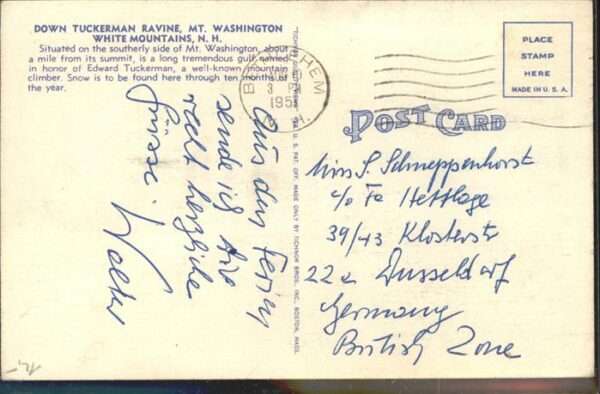 DOWN TUCKERMAN RAVINE, MT. WASHINGTON
WHITE MOUNTAINS, N. H.
Situated on the southerly side of Mt. Washington, about
a mile from its summit, is a long tremendous gulf named
in honor of Edward Tuckerman, a well-known mountain
climber. Snow is to be found here through ten months of
the year.
Aus den Ferien
sende ich Ihre
recht herzliche
Grüsse.
Walter
BETHLEHEM
3 PM
N. H.
PLACE
STAMP
HERE
MADE IN U. S. A.
POST CARD
Miss S. Schneppenhorst
c/o Fa Hettlage
39/43 Klosterstr
22a Dusseldorf
Germany
British Zone
U. S. PAT. OFF. MADE ONLY BY TICHNOR BROS., INC., BOSTON, MASS.